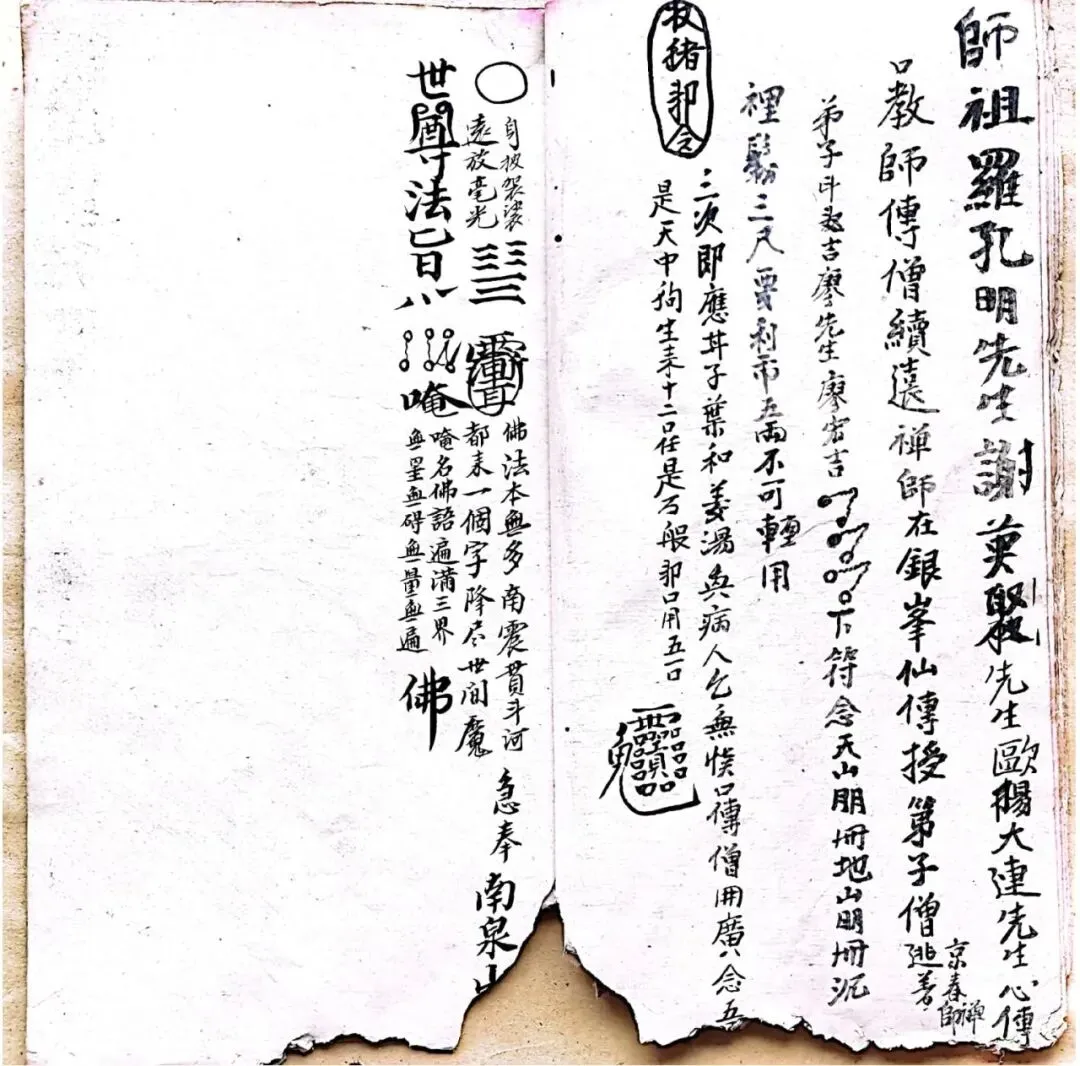 師祖羅孔明先生謝英聚先生歐陽大連先生心傳
口教師傳僧續遠禪師在銀峯仙傳授第子僧逃善
京春禅師
弟子斗吉廖先生廖宏吉
下符念天山朋冊地山明冊泥
裡鬆三尺要利市五兩不可轉用
收猪邪念
三次即應丼子葉和姜湯與病人乞無悞口傳僧用廣八念五
是天中狗生来十二口任是万般邪口用五百
自披袈裟
遠放毫光
世尊法旨
唵
佛法本無多南震貫斗河
都来一個字降尽世间魔
唵名佛語遍满三界
無星無碍無量無遍
佛
急奉南泉山